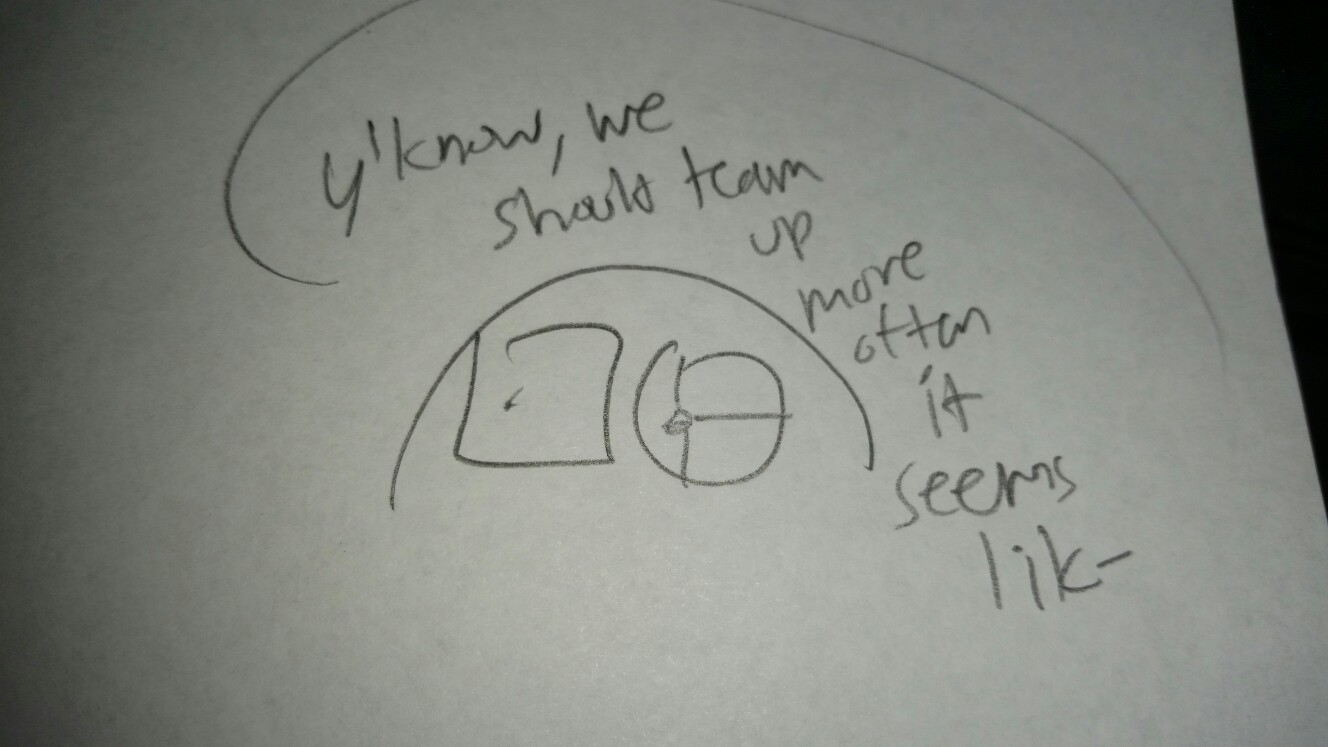 y'know, we
should team
up
more
often
it
seems
lik-